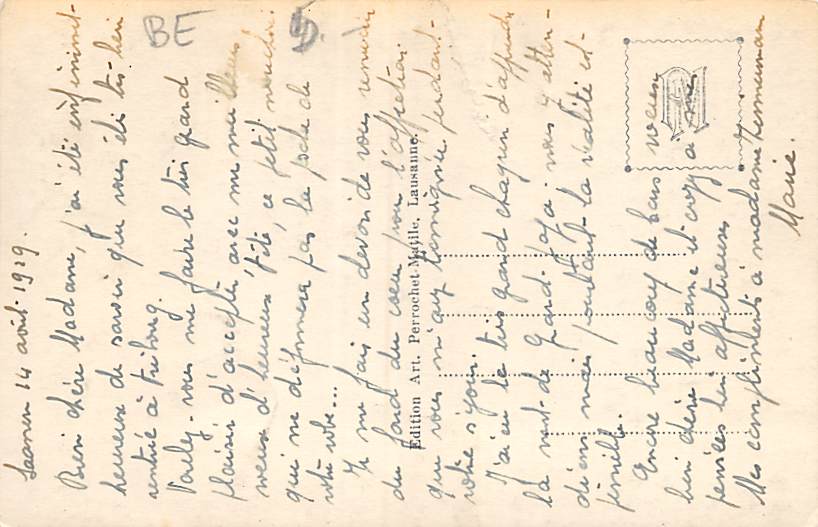 BE
Saanen 14 août 1929.
Bien chère Madame, j'ai été infiniment
heureuse de savoir que vous êtes très bien
rentrée à Fribourg.
Voulez-vous me faire le très grand
plaisir d'accepter, avec mes meilleurs
voeux d'heureuse fête, ce petit mouchoir
qui ne déformera pas la poche de
votre robe...
Je me fais un devoir de vous remercier
du fond du coeur pour l'affection
que vous m'avez témoignée pendant
votre séjour.
J'ai eu le très grand chagrin d'apprendre
la mort de Grand. papa. nous y attendions
mais pourtant la réalité est
pénible.
Encore beaucoup de bons voeux
bien chère Madame et croyez à mes
pensées bien affectueuses
Mes compliments à madame
Marie.
Edition Art. Perrochet-Matile, Lausanne.